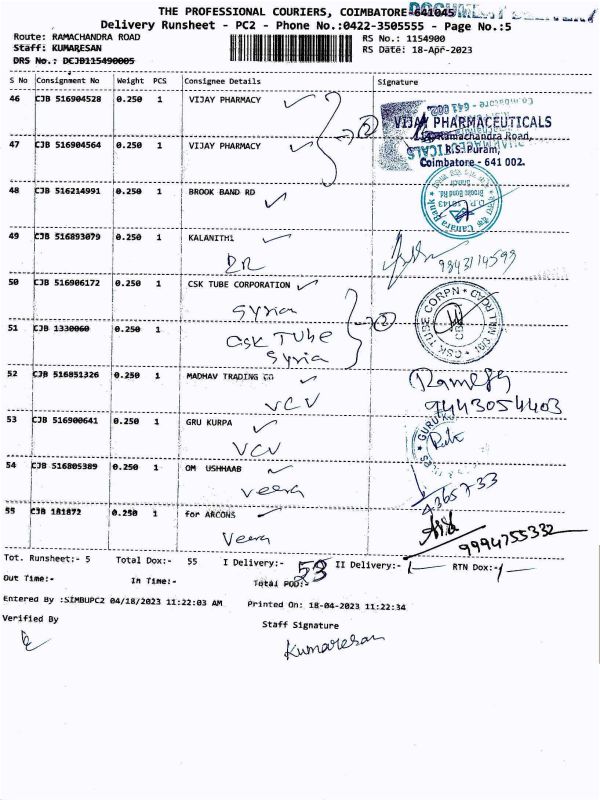 THE PROFESSIONAL COURIERS, COIMBATORE-641045
DOCUMENT DELIVERY
Delivery Runsheet - PC2 - Phone No.:0422-3505555 - Page No.:5
Route: RAMACHANDRA ROAD RS No.: 1154900
Staff: KUMARESAN RS Date: 18-Apr-2023
DRS No.: DCJB115490005
S No Consignment No Weight PCS Consignee Details Signature
46 CJB 516904528 0.250 1 VIJAY PHARMACY
VIJAY PHARMACEUTICALS
Ramachandra Road,
47 CJB 516904564 0.250 1 VIJAY PHARMACY R.S. Puram,
Coimbatore - 641 002.
2
48 CJB 516214991 0.250 1 BROOK BAND RD
Canara Bank
Brooke Bond Rd.
Branch
49 CJB 516893079 0.250 1 KALANITHI
50 CJB 516906172 0.250 1 CSK TUBE CORPORATION
Syria
2
CSK TUBE CORPN
51 CJB 1330060 0.250 1 CSK TUBE
Syria
52 CJB 516851326 0.250 1 MADHAV TRADING CO Ramesh
VCV 9443054403
53 CJB 516900641 0.250 1 GRU KURPA
VCV
54 CJB 516805389 0.250 1 OM USHHAAB
Veera
55 CJB 181872 0.250 1 for ARCONS
Veera 9994755332
Tot. Runsheet:- 5 Total Dox:- 55 I Delivery:- 53 II Delivery:- 1 RTN Dox:- 1
Out Time:- In Time:- Total POD:-
Entered By :SIMBUPC2 04/18/2023 11:22:03 AM Printed On: 18-04-2023 11:22:34
Verified By Staff Signature
Kumaresan